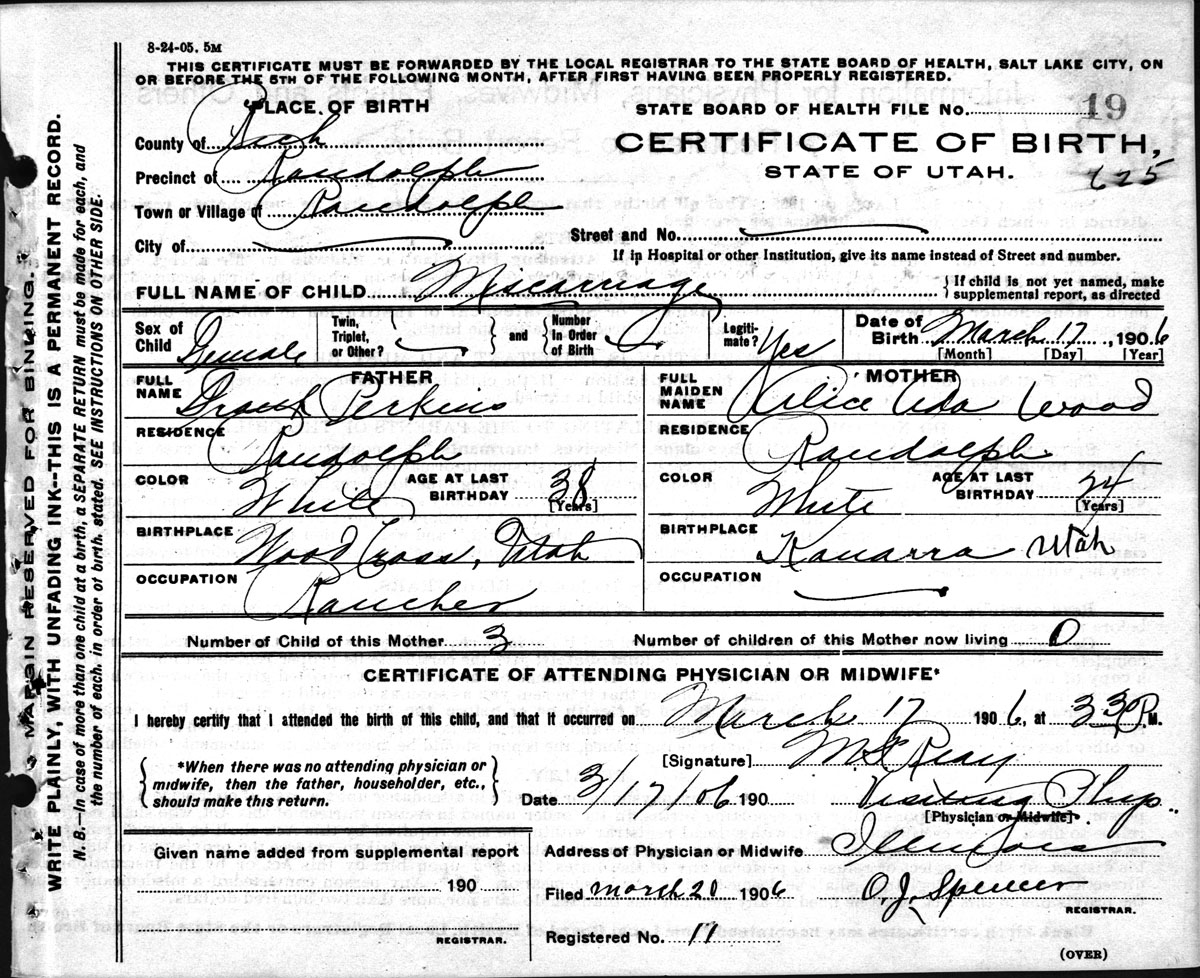 8-24-05. 5M
THIS CERTIFICATE MUST BE FORWARDED BY THE LOCAL REGISTRAR TO THE STATE BOARD OF HEALTH, SALT LAKE CITY, ON
OR BEFORE THE 5TH OF THE FOLLOWING MONTH, AFTER FIRST HAVING BEEN PROPERLY REGISTERED.
PLACE OF BIRTH
County of Rich
Precinct of Randolph
Town or Village of Randolph
City of
STATE BOARD OF HEALTH FILE No. 19
CERTIFICATE OF BIRTH,
STATE OF UTAH.
625
Street and No.
If in Hospital or other Institution, give its name instead of Street and number.
FULL NAME OF CHILD Miscarriage
If child is not yet named, make
supplemental report, as directed
Sex of Child Female
Twin, Triplet, or Other? and Number in Order of Birth
Legiti-mate? Yes
Date of Birth March 17, 1906
[Month] [Day] [Year]
FATHER
FULL NAME Perkins
RESIDENCE Randolph
COLOR White AGE AT LAST BIRTHDAY 38
[Years]
BIRTHPLACE Wood Cross, Utah
OCCUPATION Rancher
MOTHER
FULL MAIDEN NAME Alice Ada Wood
RESIDENCE Randolph
COLOR White AGE AT LAST BIRTHDAY 24
[Years]
BIRTHPLACE Kanarra Utah
OCCUPATION
Number of Child of this Mother 3 Number of children of this Mother now living 0
CERTIFICATE OF ATTENDING PHYSICIAN OR MIDWIFE*
I hereby certify that I attended the birth of this child, and that it occurred on March 17 1906, at 3 30 P.M.
*When there was no attending physician or
midwife, then the father, householder, etc.,
should make this return.
[Signature]
Date 3/17/06 190 Visiting Phys.
[Physician or Midwife]
Given name added from supplemental report
190
REGISTRAR.
Address of Physician or Midwife
Filed March 20 1906 O.J. Spencer
REGISTRAR.
Registered No. 17
(OVER)
MARGIN RESERVED FOR BINDING.
WRITE PLAINLY, WITH UNFADING INK--THIS IS A PERMANENT RECORD.
N. B.—In case of more than one child at a birth, a SEPARATE RETURN must be made for each, and
the number of each, in order of birth, stated. SEE INSTRUCTIONS ON OTHER SIDE.